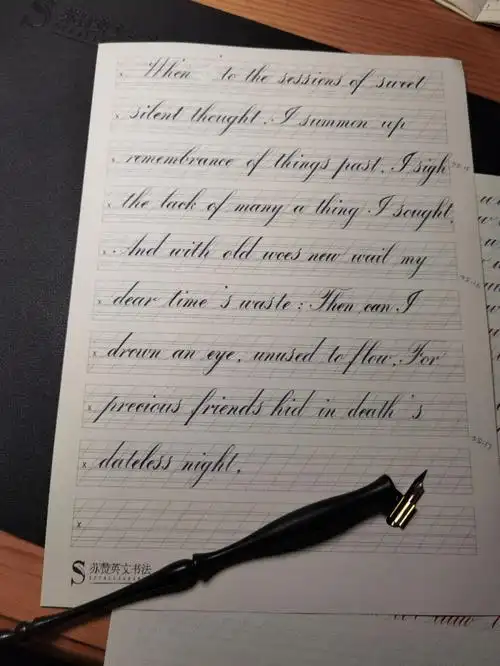 When to the sessions of sweet
silent thought. I summon up
remembrance of things past. I sigh
the lack of many a thing I sought.
And with old woes new wail my
dear time's waste: Then can I
drown an eye, unused to flow. For
precious friends hid in death's
dateless night.
S 苏赞英文书法